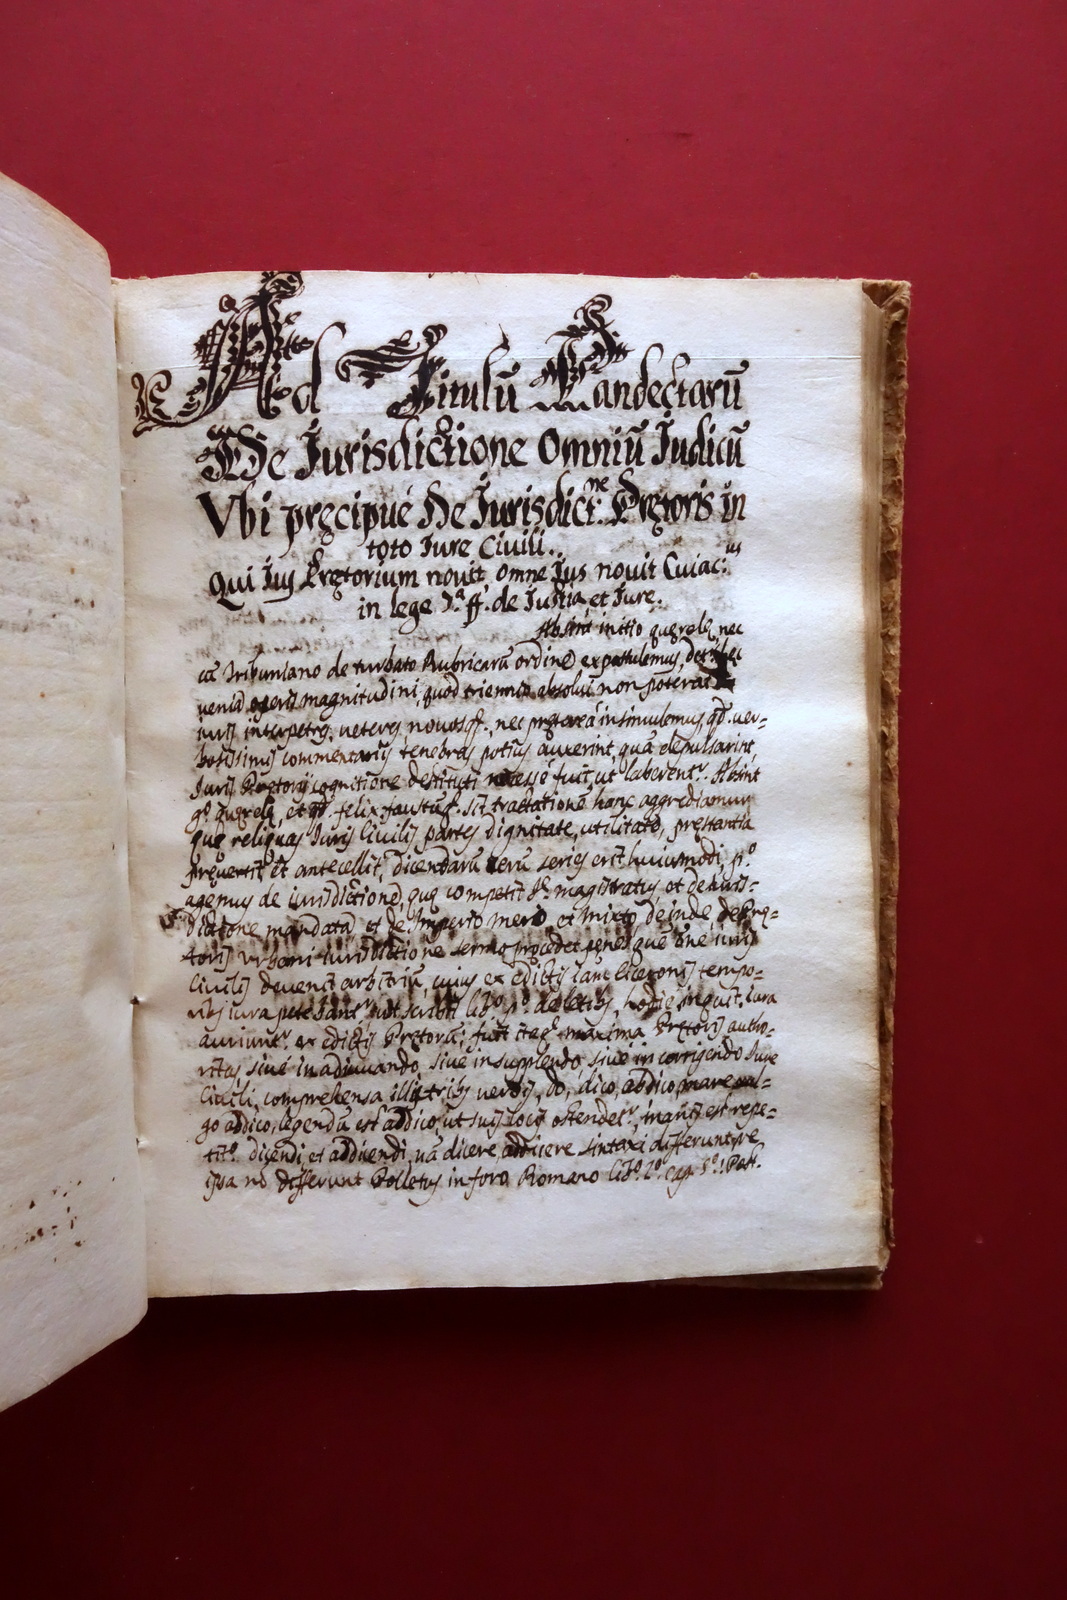 Ad Titulū Pandectarū
De Jurisdictione Omniū Judicū
Vbi pręcipué De Jurisdict:ne Prętoris in
toto Jure Civili..
Qui Jus Prętorium novit, omne Jus novit Cuiac:us
in lege 7.a ff. de Justia, et Jure.
Absint initio querelę, nec
cū Triboniano de turbato Rubricarū ordine expostulemus,
veniā operis magnitudini, quod triennio absolui non poterat
iuris interpretes, veteres, novosq., nec pręterea insimulemus, qd. ver=
bosissimis commentarijs tenebras potius auxerint, quā depulsarint,
Juris Prętorij cognitione destituti necesse fuit, ut laberentr. Absint
gº querelę, et felix, faustūq. sit tractationē hanc aggrediamur
que reliquas Juris Civilis partes dignitate, utilitate, pręstantia
pręvertit, et antecellit, dicendarū rerū series erit huiusmodi, pº
agemus de iurisdictione, que competit magistratus et de iuris=
dictione mandata, et de Imperio mero, et mixto, deinde, de Prę=
toris urbani iurisdictione sermo procedet penes quē oñe iuris
Civilis devenit arbitriū, cuius ex edictis iam Ciceronis tempo=
ribs iura petebantr, ut scribit libº pº de letibs, hodie, inquit, iura
auriuntr ex edictis Prętorū; fuit itaq maxima Prętoris autho=
ritas sive in adiuvando, sive in supplendo, sive in corrigendo Jure
Civili, comprehensa illis tribs verbis, do, dico, abdico,
go addico, legendū est addico, ut suis locis ostendetr, est repe=
titº dicendi, et addicendi, nā dicere, addicere sintaxi differunt, re
ipsa nō differunt Polletus in foro Romano libº 2º cap. 5º.